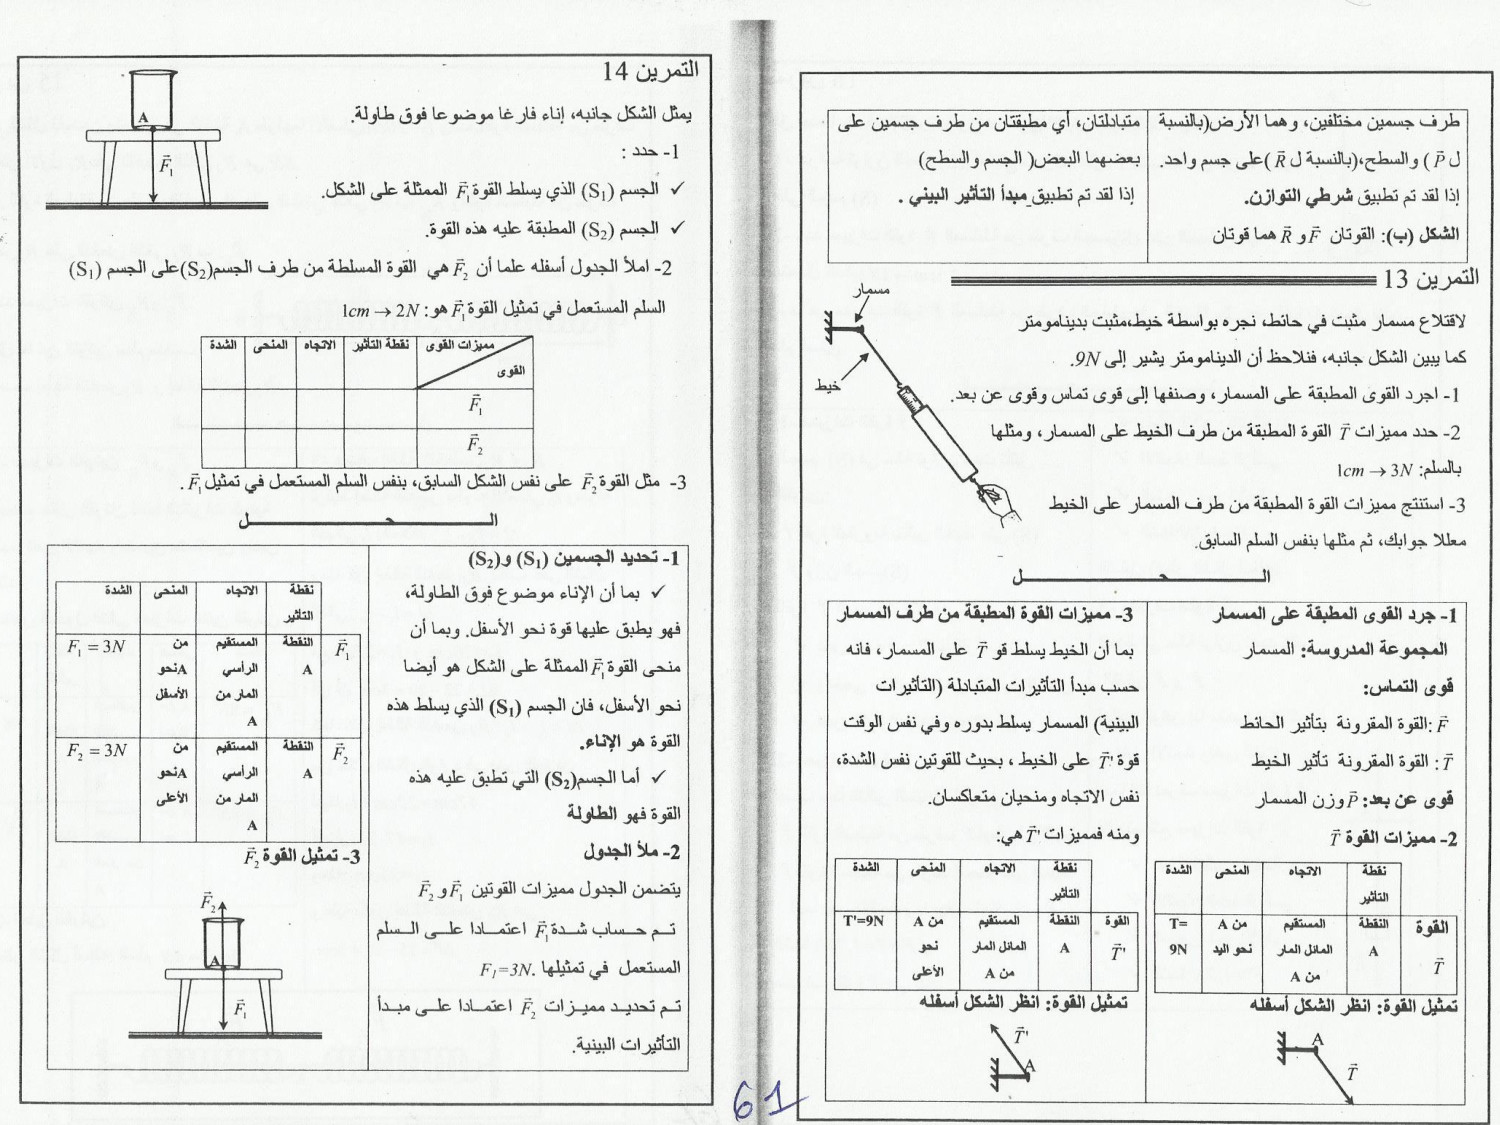 طرف جسمين مختلفين، وهما الأرض(بالنسبة
ل P⃗ ) والسطح،(بالنسبة ل R⃗ )على جسم واحد.
إذا لقد تم تطبيق شرطي التوازن.
الشكل (ب): القوتان F⃗ و R⃗ هما قوتان
متبادلتان، أي مطبقتان من طرف جسمين على
بعضهما البعض( الجسم والسطح)
إذا لقد تم تطبيق مبدأ التأثير البيني .
التمرين 13
مسمار
خيط
لاقتلاع مسمار مثبت في حائط، نجره بواسطة خيط،مثبت بدينامومتر
كما يبين الشكل جانبه، فنلاحظ أن الدينامومتر يشير إلى 9N.
1- اجرد القوى المطبقة على المسمار، وصنفها إلى قوى تماس وقوى عن بعد.
2- حدد مميزات T⃗ القوة المطبقة من طرف الخيط على المسمار، ومثلها
بالسلم: 1cm → 3N
3- استنتج مميزات القوة المطبقة من طرف المسمار على الخيط
معللا جوابك، ثم مثلها بنفس السلم السابق.
الـــحـــل
1- جرد القوى المطبقة على المسمار
المجموعة المدروسة: المسمار
قوى التماس:
F⃗ :القوة المقرونة بتأثير الحائط
T⃗ : القوة المقرونة تأثير الخيط
قوى عن بعد: P⃗ وزن المسمار
2- مميزات القوة T⃗
نقطة التأثير الاتجاه المنحى الشدة
القوة T⃗ النقطة A المستقيم المائل المار من A من A نحو اليد T= 9N
تمثيل القوة: انظر الشكل أسفله
A
T⃗
3- مميزات القوة المطبقة من طرف المسمار
بما أن الخيط يسلط قو T⃗ على المسمار، فانه
حسب مبدأ التأثيرات المتبادلة (التأثيرات
البينية) المسمار يسلط بدوره وفي نفس الوقت
قوة T⃗' على الخيط ، بحيث للقوتين نفس الشدة،
نفس الاتجاه ومنحيان متعاكسان.
ومنه فمميزات T⃗' هي:
نقطة التأثير الاتجاه المنحى الشدة
القوة T⃗' النقطة A المستقيم المائل المار من A من A نحو الأعلى T'=9N
تمثيل القوة: انظر الشكل أسفله
T⃗'
A
التمرين 14
A
F⃗₁
يمثل الشكل جانبه، إناء فارغا موضوعا فوق طاولة.
1- حدد :
✓ الجسم (S₁) الذي يسلط القوة F⃗₁ الممثلة على الشكل.
✓ الجسم (S₂) المطبقة عليه هذه القوة.
2- املأ الجدول أسفله علما أن F⃗₂ هي القوة المسلطة من طرف الجسم(S₂)على الجسم (S₁)
السلم المستعمل في تمثيل القوة F⃗₁ هو: 1cm → 2N
مميزات القوى القوى نقطة التأثير الاتجاه المنحى الشدة
F⃗₁
F⃗₂
3- مثل القوة F⃗₂ على نفس الشكل السابق، بنفس السلم المستعمل في تمثيل F⃗₁.
الـــحـــل
1- تحديد الجسمين (S₁) و(S₂)
✓ بما أن الإناء موضوع فوق الطاولة،
فهو يطبق عليها قوة نحو الأسفل. وبما أن
منحى القوة F⃗₁ الممثلة على الشكل هو أيضا
نحو الأسفل، فان الجسم (S₁) الذي يسلط هذه
القوة هو الإناء.
✓ أما الجسم(S₂) التي تطبق عليه هذه
القوة فهو الطاولة
2- ملأ الجدول
يتضمن الجدول مميزات القوتين F⃗₁ و F⃗₂
تم حساب شدة F⃗₁ اعتمادا على السلم
المستعمل في تمثيلها .F₁=3N
تم تحديد مميزات F⃗₂ اعتمادا على مبدأ
التأثيرات البينية.
نقطة التأثير الاتجاه المنحى الشدة
F⃗₁ النقطة A المستقيم الرأسي المار من A من A نحو الأسفل F₁ = 3N
F⃗₂ النقطة A المستقيم الرأسي المار من A من A نحو الأعلى F₂ = 3N
3- تمثيل القوة F⃗₂
F⃗₂
A
F⃗₁
61